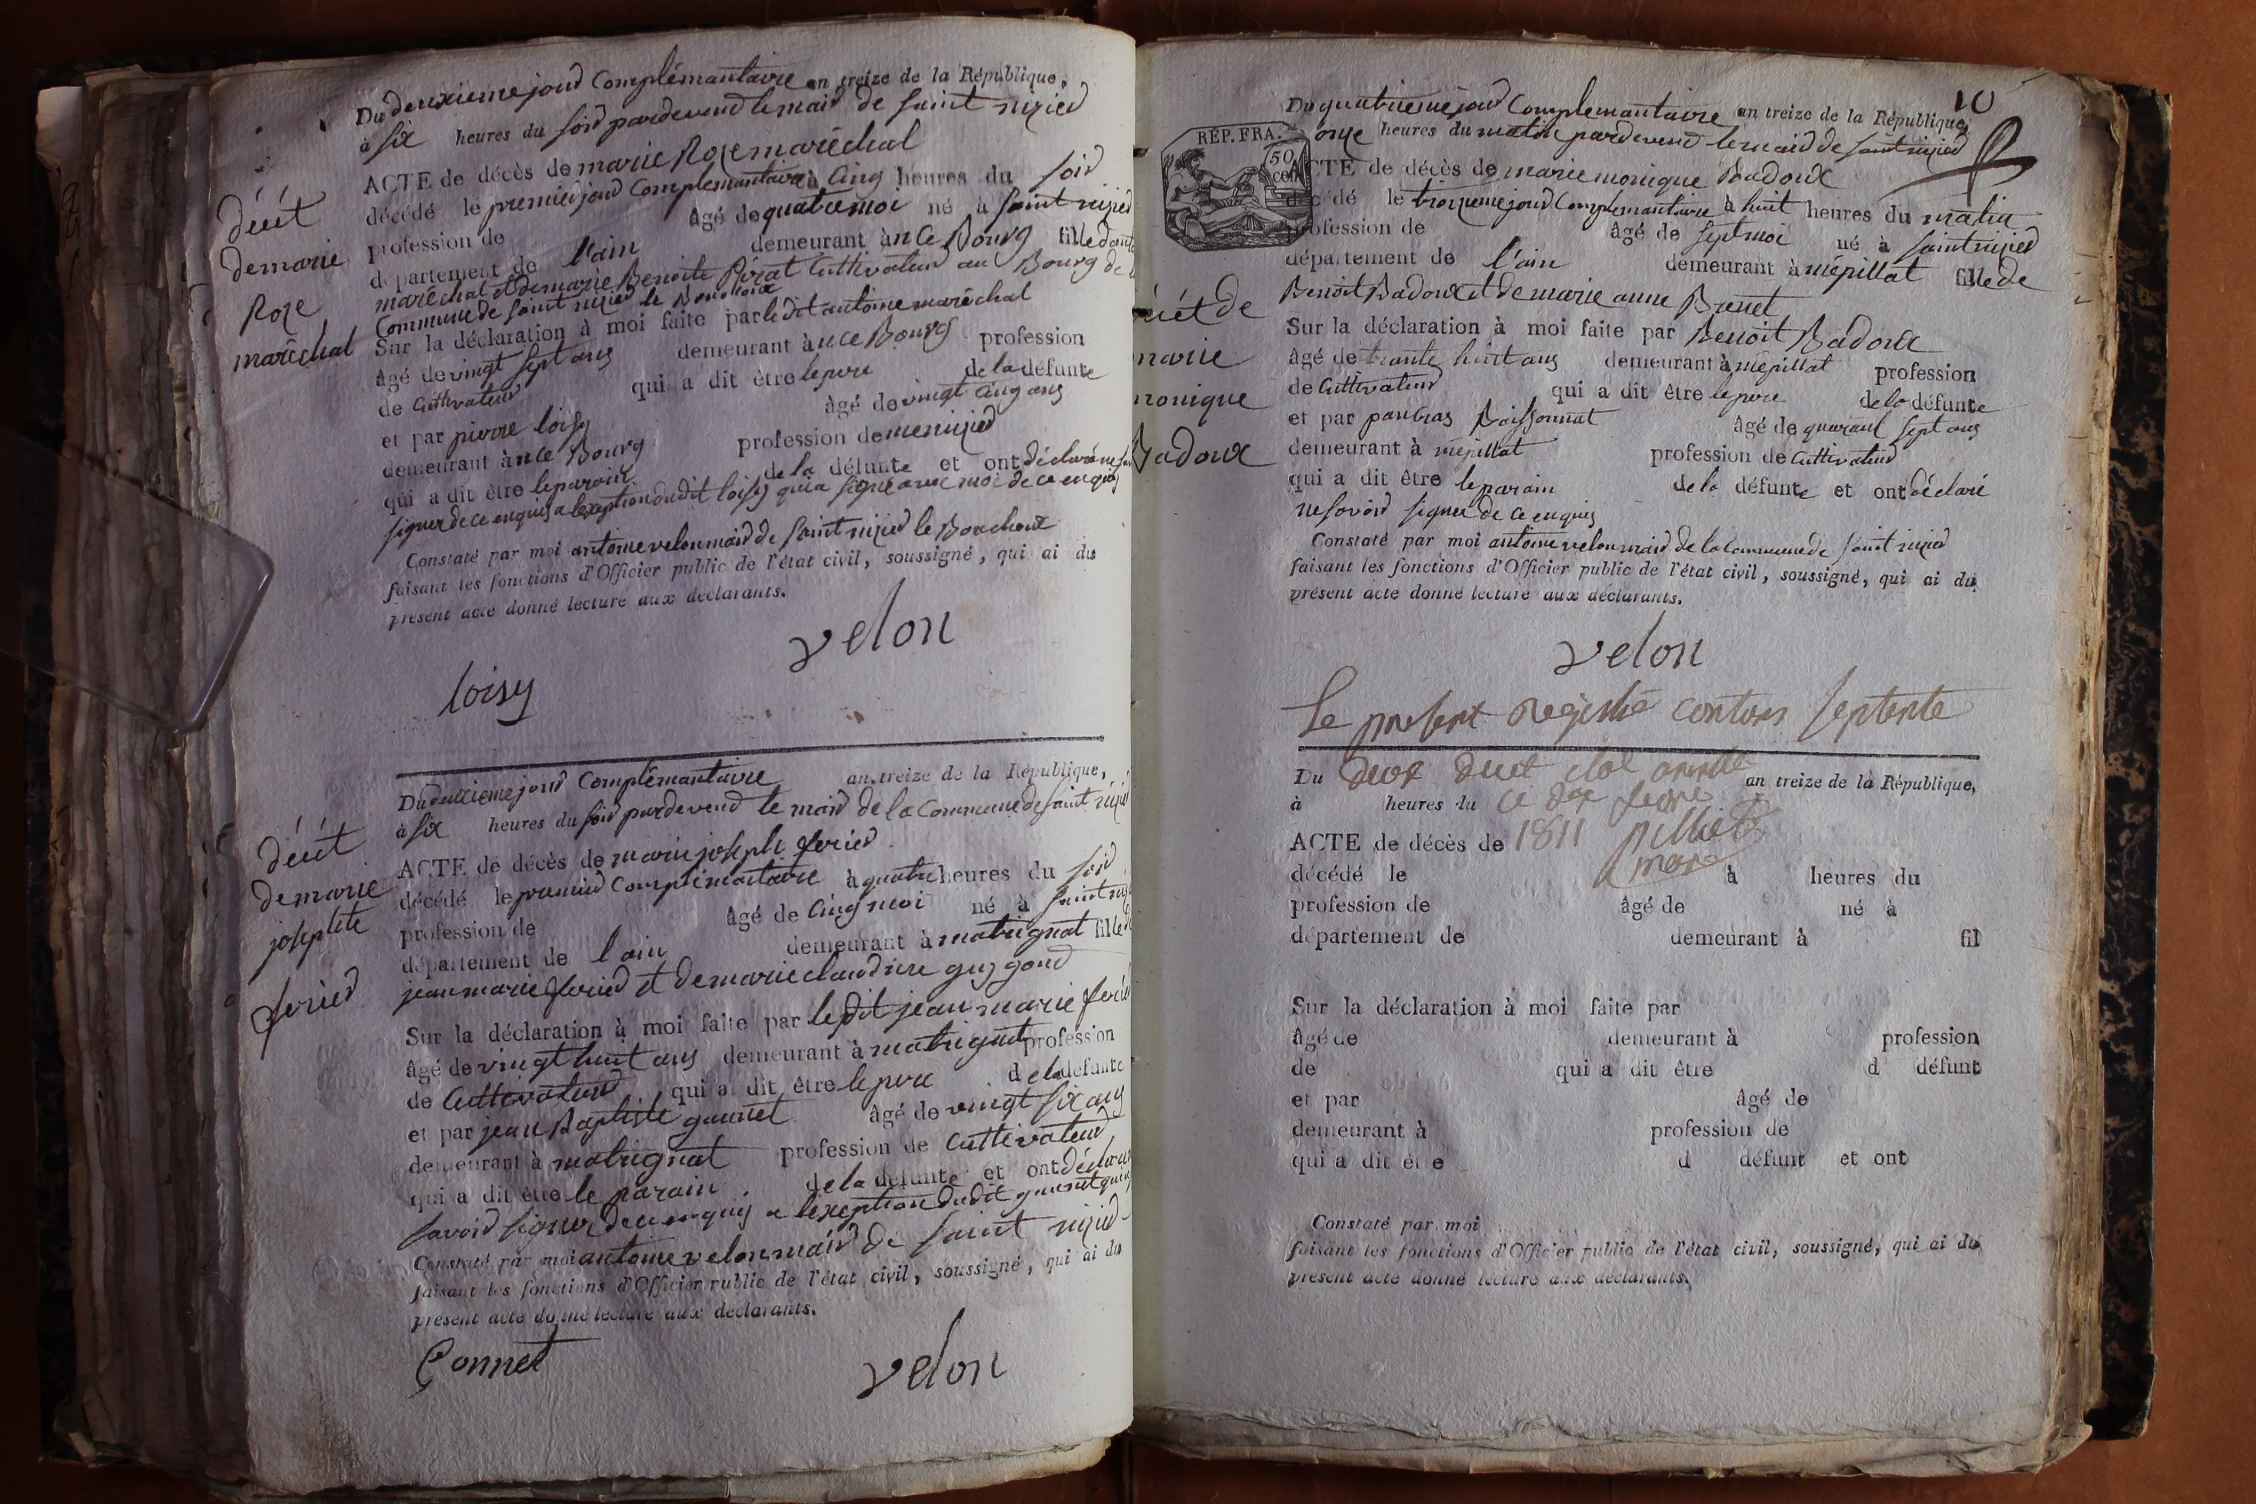 Du deuxieme jour Complémantaire an treize de la République,
à six heures du soir pardevend le maire de saint nizier
ACTE de décès de marie Roze maréchal
décédé le premier jour Complemantaire à Cinq heures du soir
profession de âgé de quatre moi né à saint nizier
département de l'ain demeurant à nce Bourg fille dant
maréchal et de marie Benoite Pirat Cultivateur au Bourg de la
Commune de saint nizier le Bouchoux
Sur la déclaration à moi faite par le dit antoine maréchal
âgé de vingt sept ans demeurant à nce Bourg profession
de Cultivateur qui a dit être le pere de la défunte
et par pierre loisy âgé de vingt cinq ans
demeurant à nce Bourg profession de menuzier
qui a dit être le parain de la défunte et ont déclaré ne sa
signer de ce enquis a lexeption dudit loisy qui a signé avec moi de ce enquis
Constaté par moi antoine velon maire de saint nizier le Bouchoux
faisant les fonctions d'Officier public de l'état civil, soussigné, qui ai du
présent acte donné lecture aux déclarants.
velon
loisy
décét
de marie
Roze
maréchal
Du deuxieme jour Complémantaire an treize de la République,
à six heures du soir pardevend le maire de la Commune de saint nizier
ACTE de décès de marie joseph ferier
décédé le premier Complémantaire à quatre heures du soir
profession de âgé de Cinq moi né à saint niz
département de l'ain demeurant à matrignat fille de
jean marie ferier et de marie claudine guygond
Sur la déclaration à moi faite par le dit jean marie ferier
âgé de vingt huit ans demeurant à matrignat profession
de Cultivateur qui a dit être le pere de la défunte
et par jean Baptiste gaunet âgé de vingt six ans
demeurant à matrignat profession de Cultivateur
qui a dit être le parain de la défunte et ont déclaré
savoir signer de ce enquis a lexeption dudit gaunet qui
Constaté par moi antoine velon maire de saint nizier
faisant les fonctions d'Officier public de l'état civil, soussigné, qui ai du
présent acte donné lecture aux déclarants.
Gonnet velon
décét
de marie
josephte
ferier
10
Du quatrieme jour Complemantaire an treize de la République,
onze heures du matin pardevend le maire de saint nizier
REP. FRA.
50
cen
ACTE de décès de marie monique Badoux
décédé le troizieme jour Complemantaire à huit heures du matin
profession de âgé de sept moi né à saint nizier
département de l'ain demeurant à mépillat fille de
Benoit Badoux et de marie anne Brunet
Sur la déclaration à moi faite par Benoit Badoux
âgé de trante huit ans demeurant à mépillat profession
de Cultivateur qui a dit être le pere de la défunte
et par pancras Boissonnat âgé de quarant sept ans
demeurant à mépillat profession de Cultivateur
qui a dit être le parain de la défunte et ont déclaré
ne savoir signer de ce enquis
Constaté par moi antoine velon maire de la commune de saint nizier
faisant les fonctions d'Officier public de l'état civil, soussigné, qui ai du
présent acte donné lecture aux déclarants.
velon
écét de
marie
monique
Badoux
Le present Registre septente
Du an treize de la République,
à heures du ce
ACTE de décès de 1811
décédé le à heures du
profession de âgé de né à
département de demeurant à fil
Sur la déclaration à moi faite par
âgé de demeurant à profession
de qui a dit être d défunt
et par âgé de
demeurant à profession de
qui a dit être d défunt et ont
Constaté par moi
faisant les fonctions d'Officier public de l'état civil, soussigné, qui ai du
présent acte donné lecture aux déclarants.